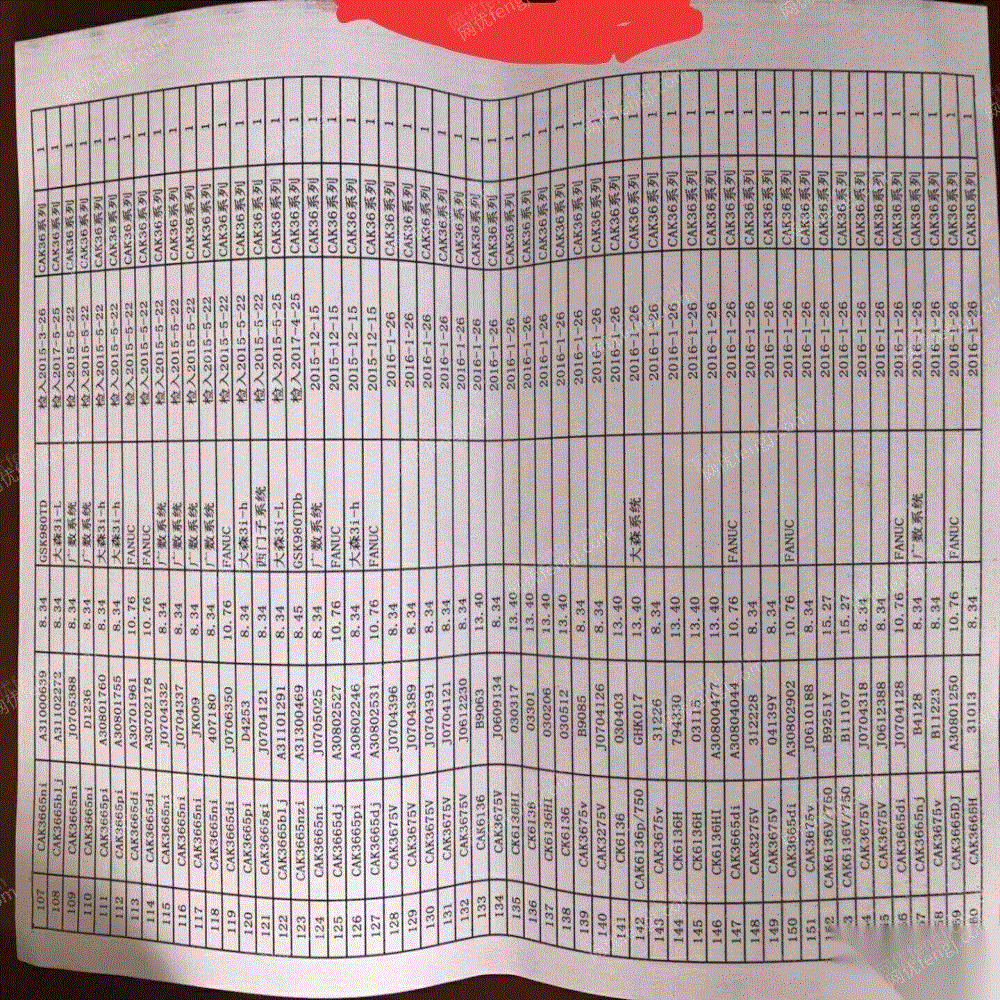 107 CAK3665ni A31000639 8.34 GSK980TD 检入2015-3-26 CAK36系列 1
108 CAK3665hlj A31102272 8.34 大森3i-L 检入2017-5-25 CAK36系列 1
109 CAK3665ni J0705388 8.34 广数系统 检入2015-5-22 CAK36系列 1
110 CAK3665ni D1236 8.34 广数系统 检入2015-5-22 CAK36系列 1
111 CAK3665pi A30801760 8.34 大森3i-h 检入2015-5-22 CAK36系列 1
112 CAK3665pi A30801755 8.34 大森3i-h 检入2015-5-22 CAK36系列 1
113 CAK3665di A30701961 10.76 FANUC 检入2015-5-22 CAK36系列 1
114 CAK3665di A30702178 10.76 FANUC 检入2015-5-22 CAK36系列 1
115 CAK3665ni J0704332 8.34 广数系统 检入2015-5-22 CAK36系列 1
116 CAK3665ni J0704337 8.34 广数系统 检入2015-5-22 CAK36系列 1
117 CAK3665ni JK009 8.34 广数系统 检入2015-5-22 CAK36系列 1
118 CAK3665ni 407180 8.34 广数系统 检入2015-5-22 CAK36系列 1
119 CAK3665di J0706350 10.76 FANUC 检入2015-5-22 CAK36系列 1
120 CAK3665pi D4253 8.34 大森3i-h 检入2015-5-22 CAK36系列 1
121 CAK3665gi J0704121 8.34 西门子系统 检入2015-5-22 CAK36系列 1
122 CAK3665blj A31101291 8.34 大森3i-L 检入2015-5-25 CAK36系列 1
123 CAK3665nzi A31300469 8.45 GSK980TDb 检入2017-4-25 CAK36系列 1
124 CAK3665ni J0705025 8.34 广数系统 2015-12-15 CAK36系列 1
125 CAK3665dj A30802527 10.76 FANUC 2015-12-15 CAK36系列 1
126 CAK3665pi A30802246 8.34 大森3i-h 2015-12-15 CAK36系列 1
127 CAK3665dj A30802531 10.76 FANUC 2015-12-15 CAK36系列 1
128 CAK3675V J0704396 8.34 2016-1-26 CAK36系列 1
129 CAK3675V J0704389 8.34 2016-1-26 CAK36系列 1
130 CAK3675V J0704391 8.34 2016-1-26 CAK36系列 1
131 CAK3675V J0704121 8.34 2016-1-26 CAK36系列 1
132 CAK3675V J0612230 8.34 2016-1-26 CAK36系列 1
133 CAK6136 B9063 13.40 2016-1-26 CAK36系列 1
134 CAK3675V J0609134 8.34 2016-1-26 CAK36系列 1
135 CK6136HI 030317 13.40 2016-1-26 CAK36系列 1
136 CK6136 03301 13.40 2016-1-26 CAK36系列 1
137 CK6136HI 030206 13.40 2016-1-26 CAK36系列 1
138 CK6136 030512 13.40 2016-1-26 CAK36系列 1
139 CAK3675v B9085 8.34 2016-1-26 CAK36系列 1
140 CAK3275V J0704126 8.34 2016-1-26 CAK36系列 1
141 CK6136 030403 13.40 2016-1-26 CAK36系列 1
142 CAK6136p/750 GHK017 13.40 大森系统 2016-1-26 CAK36系列 1
143 CAK3675v 31226 8.34 2016-1-26 CAK36系列 1
144 CK6136H 794330 13.40 2016-1-26 CAK36系列 1
145 CK6136H 031151 13.40 2016-1-26 CAK36系列 1
146 CK6136HI A30800477 13.40 2016-1-26 CAK36系列 1
147 CAK3665di A30804044 10.76 FANUC 2016-1-26 CAK36系列 1
148 CAK3275V 312228 8.34 2016-1-26 CAK36系列 1
149 CAK3675V 04139Y 8.34 2016-1-26 CAK36系列 1
150 CAK3665di A30802902 10.76 FANUC 2016-1-26 CAK36系列 1
151 CAK3675v J0610188 8.34 2016-1-26 CAK36系列 1
CAK6136V/750 B9251Y 15.27 2016-1-26 CAK36系列 1
3 CAK6136V/750 B11107 15.27 2016-1-26 CAK36系列 1
CAK3675V J0704318 8.34 2016-1-26 CAK36系列 1
CAK3675V J0612388 8.34 2016-1-26 CAK36系列 1
CAK3665di J0704128 10.76 FANUC 2016-1-26 CAK36系列 1
CAK3665nj B4128 8.34 广数系统 2016-1-26 CAK36系列 1
CAK3675v B11223 8.34 2016-1-26 CAK36系列 1
CAK3665DJ A30801250 10.76 FANUC 2016-1-26 CAK36系列 1
CAK3665H 31013 8.34 2016-1-26 CAK36系列 1